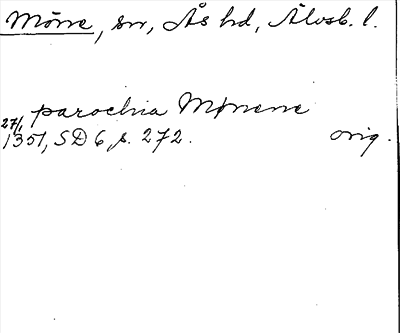 Mörre, sn, Ås hd, Älvsb. l.
parochia Mørene
27/1
1351, SD 6, s. 272. orig.